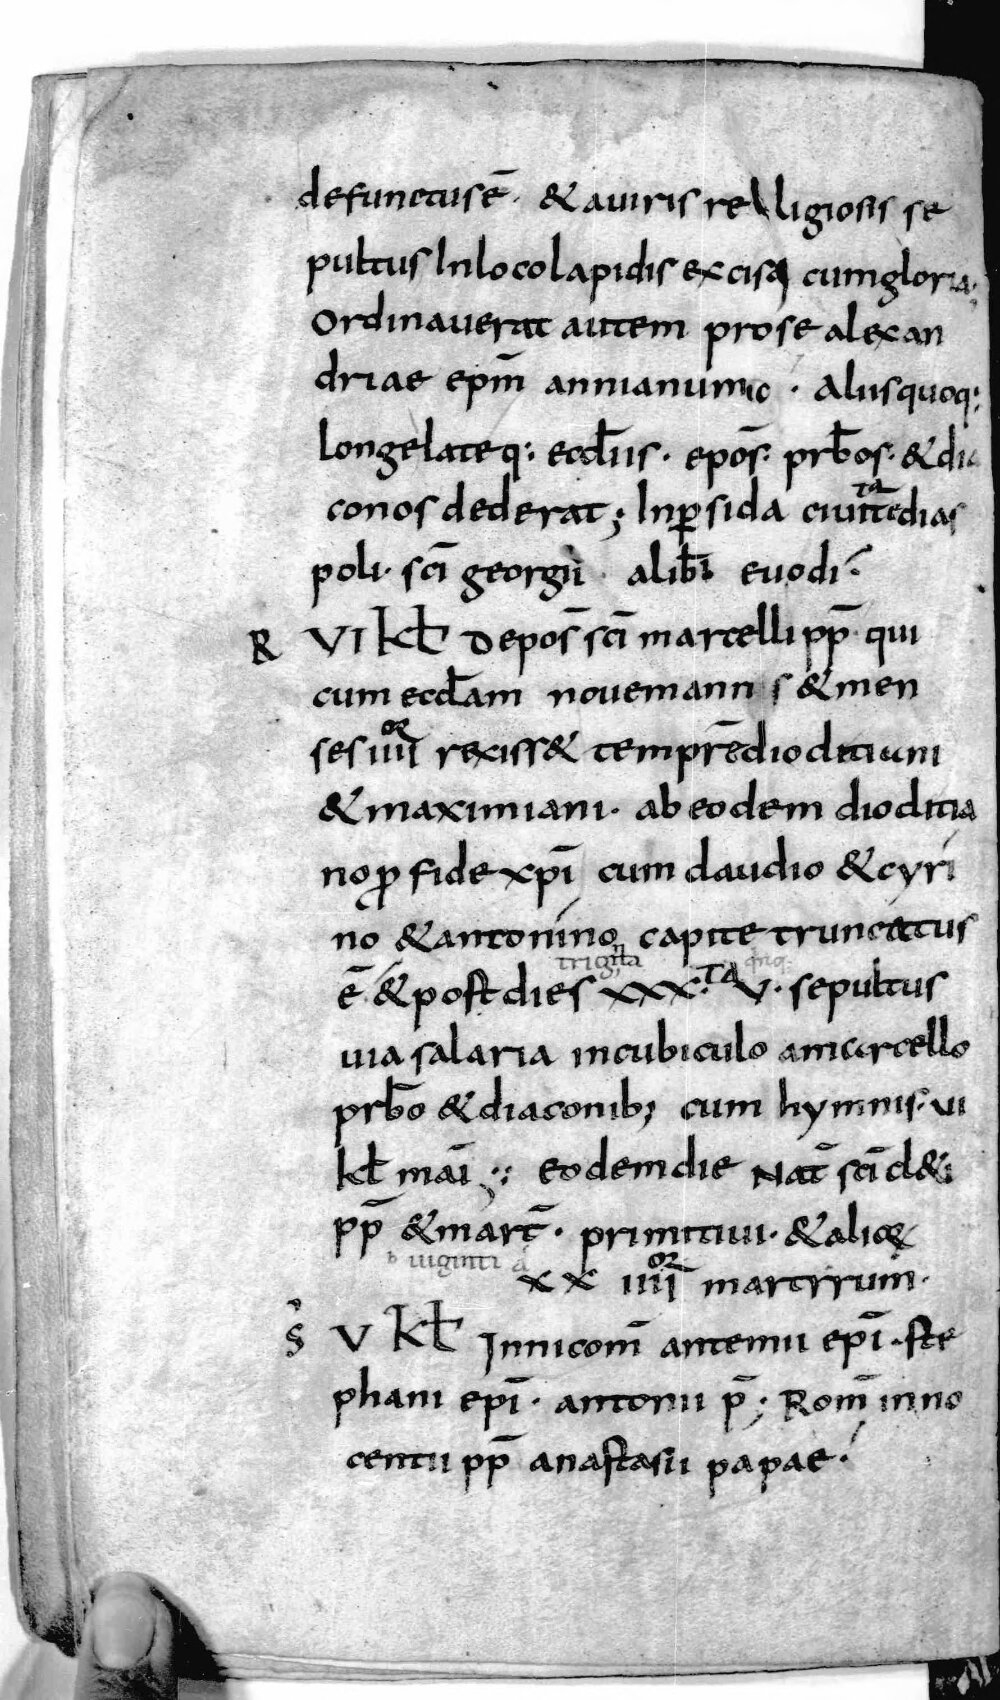 defunctus ē· & a uiris religiosis se
pultus In loco lapidis exciso cum gloria;
Ordinauerat autem pro se alexan
driae ep̄m annianum · Aliis quoq:
longe lateq: eccl̄iis· epōs· prb̄os· & dia
conos dederat; In ꝑsida ciuitate dias
poli· sc̄i georgii · alib̄i euodi·
R VI kł Depoś sc̄i marcelli pp̄ qui
cum eccl̄am nouem annis & men
ses iiii or rexiss& temp̄r dioclitiani
& maximiani· ab eodem dioclitia
no ꝓ fide xp̄i cum claudio & cyri
no & antonino capite truncatus
triginta quinq·
ē & post dies xxx·TA V· sepultus
uia salaria in cubiculo a marcello
prb̄o & diaconib; cum hymnis· ui
kł māi ·: eodem die Nat̄ sc̄i cl&i
pp̄ & mart̄· primitiui· & alioꝝ
b uiginti a
xx iiii or martyrum·
S V kł In nicom̄ antemii ep̄i· ste
phani ep̄i· antonii p̄; Rom̄ inno
centii pp̄ anastasii papae·